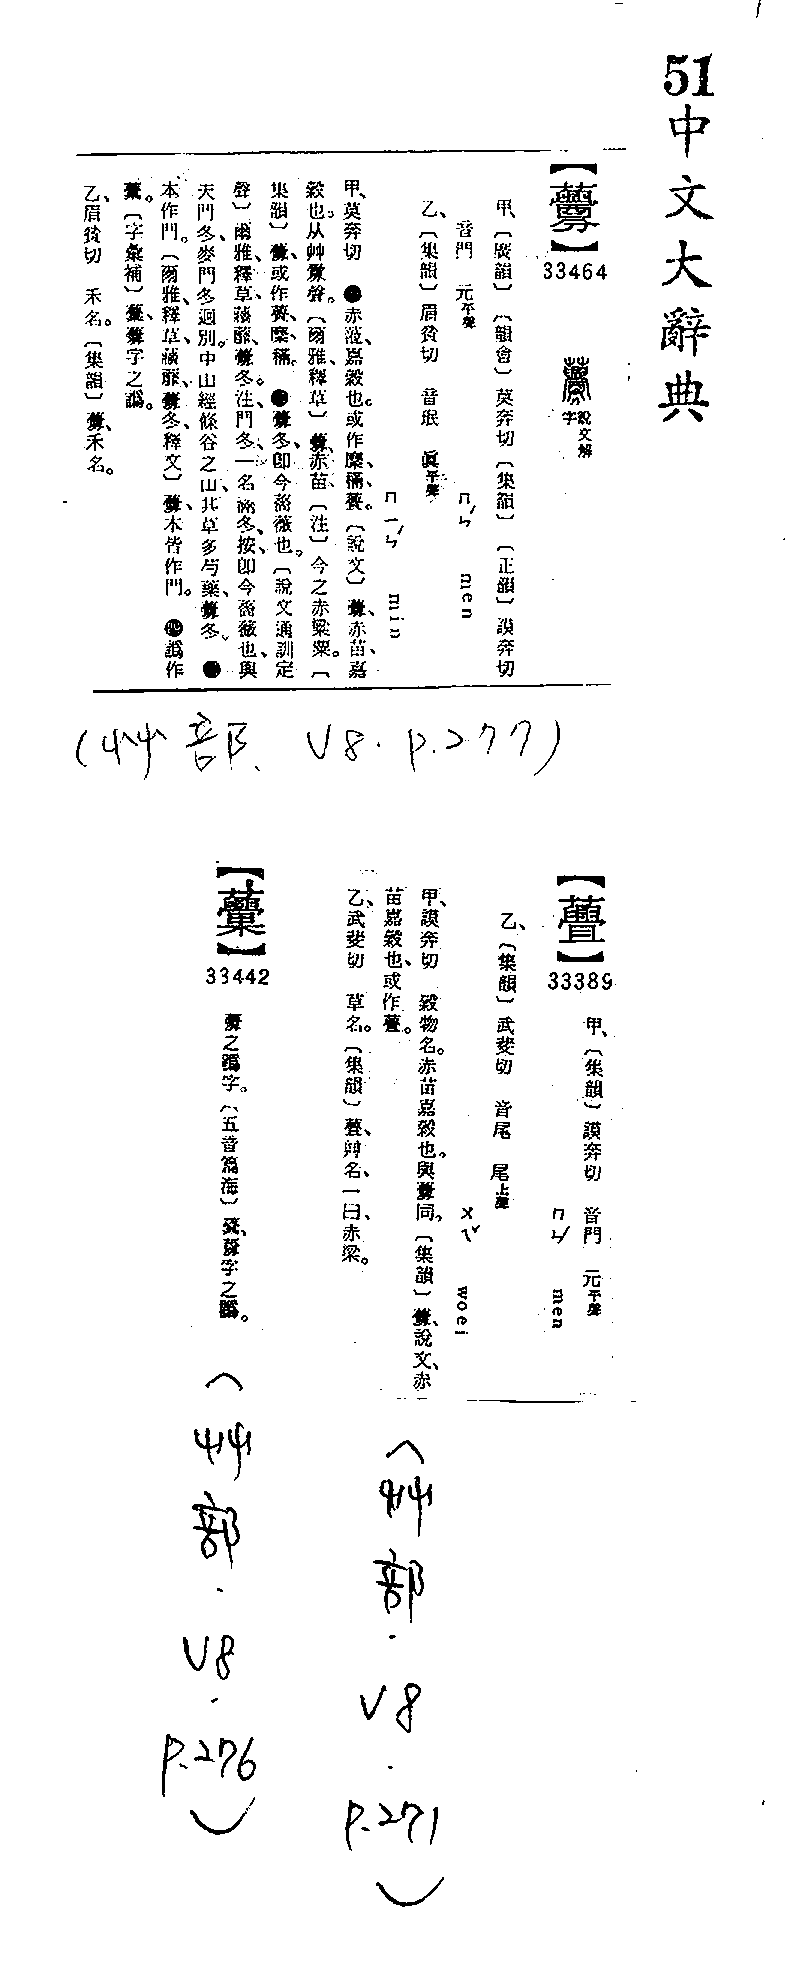 51中文大辭典
【虋】
33464
說文解字
甲、〔廣韻〕〔韻會〕莫奔切〔集韻〕〔正韻〕謨奔切
音門 元平聲 ㄇㄣˊ men
乙、〔集韻〕眉貧切 音珉 眞平聲
ㄇㄧㄣˊ min
甲、莫奔切 ●赤苗、嘉穀也。或作穈、𪎭、虋。〔說文〕虋、赤苗、嘉
穀也。从艸釁聲。〔爾雅、釋草〕虋、赤苗〔注〕今之赤粱粟。〔
集韻〕虋、或作穈。●虋冬、卽今薔薇也。〔說文通訓定
聲〕爾雅釋草、蘠蘼、虋冬。注、門冬、一名滿冬、按、卽今薔薇也、與
天門冬麥門冬迥別。中山經條谷之山、其草多芍藥、虋冬。●
本作門。〔爾雅、釋草、蘠蘼、虋冬、釋文〕虋、本皆作門。●譌作
〔字彙補〕虋字之譌。
乙、眉貧切 禾名。〔集韻〕虋、禾名。
(艸部. V8. P.277)
33389
甲、〔集韻〕謨奔切 音門 元平聲
ㄇㄣˊ men
乙、〔集韻〕武斐切 音尾 尾上聲
ㄨㄟˇ woei
甲、謨奔切 穀物名。赤苗嘉穀也。與虋同。〔集韻〕虋、說文、赤
苗嘉穀也、或作。
乙、武斐切 草名。〔集韻〕艸名、一曰、赤粱。
(艸部.V8.P.271)
33442
虋之譌字。〔五音篇海〕虋字之譌。
(艸部.V8.P.276)